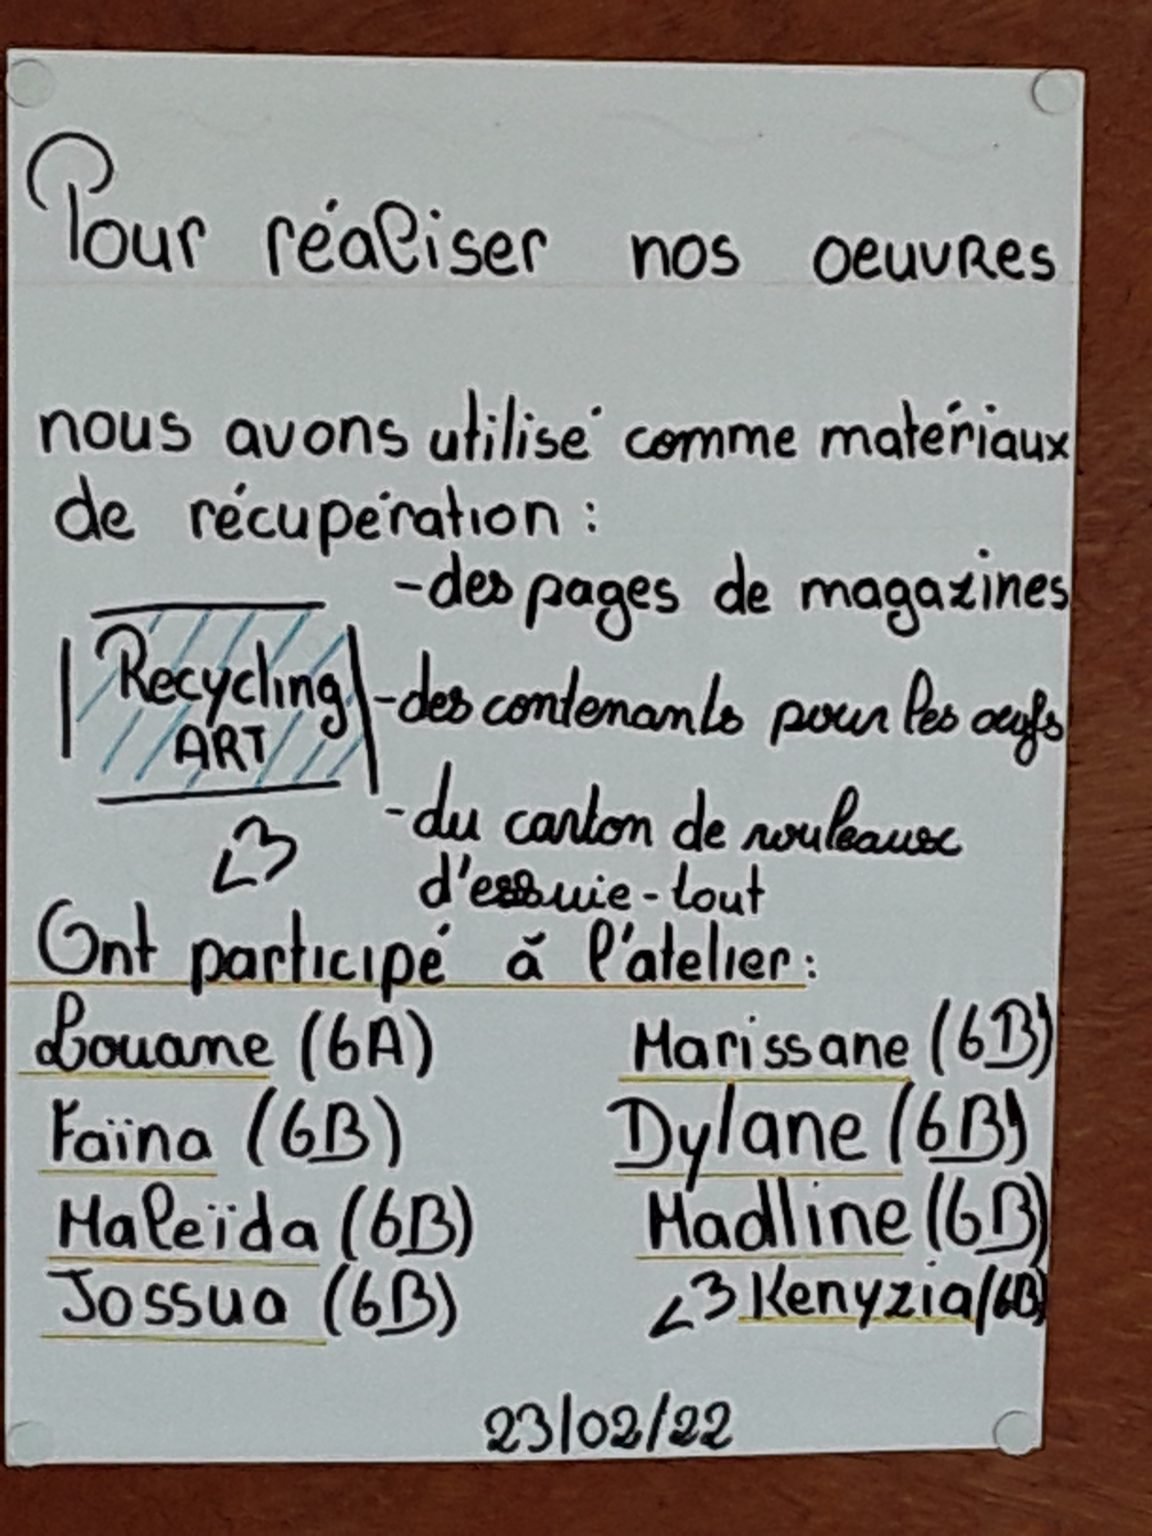 Pour réaliser nos oeuvres
nous avons utilisé comme matériaux
de récupération :
-des pages de magazines
Recycling
ART
-des contenants pour les oeufs
-du carton de rouleaux
d'essuie-tout
<3
Ont participé à l'atelier:
Louane (6A)
Marissane (6B)
Faïna (6B)
Dylane (6B)
Maleïda (6B)
Madline (6B)
Jossua (6B)
<3 Kenyzia (6B)
23/02/22